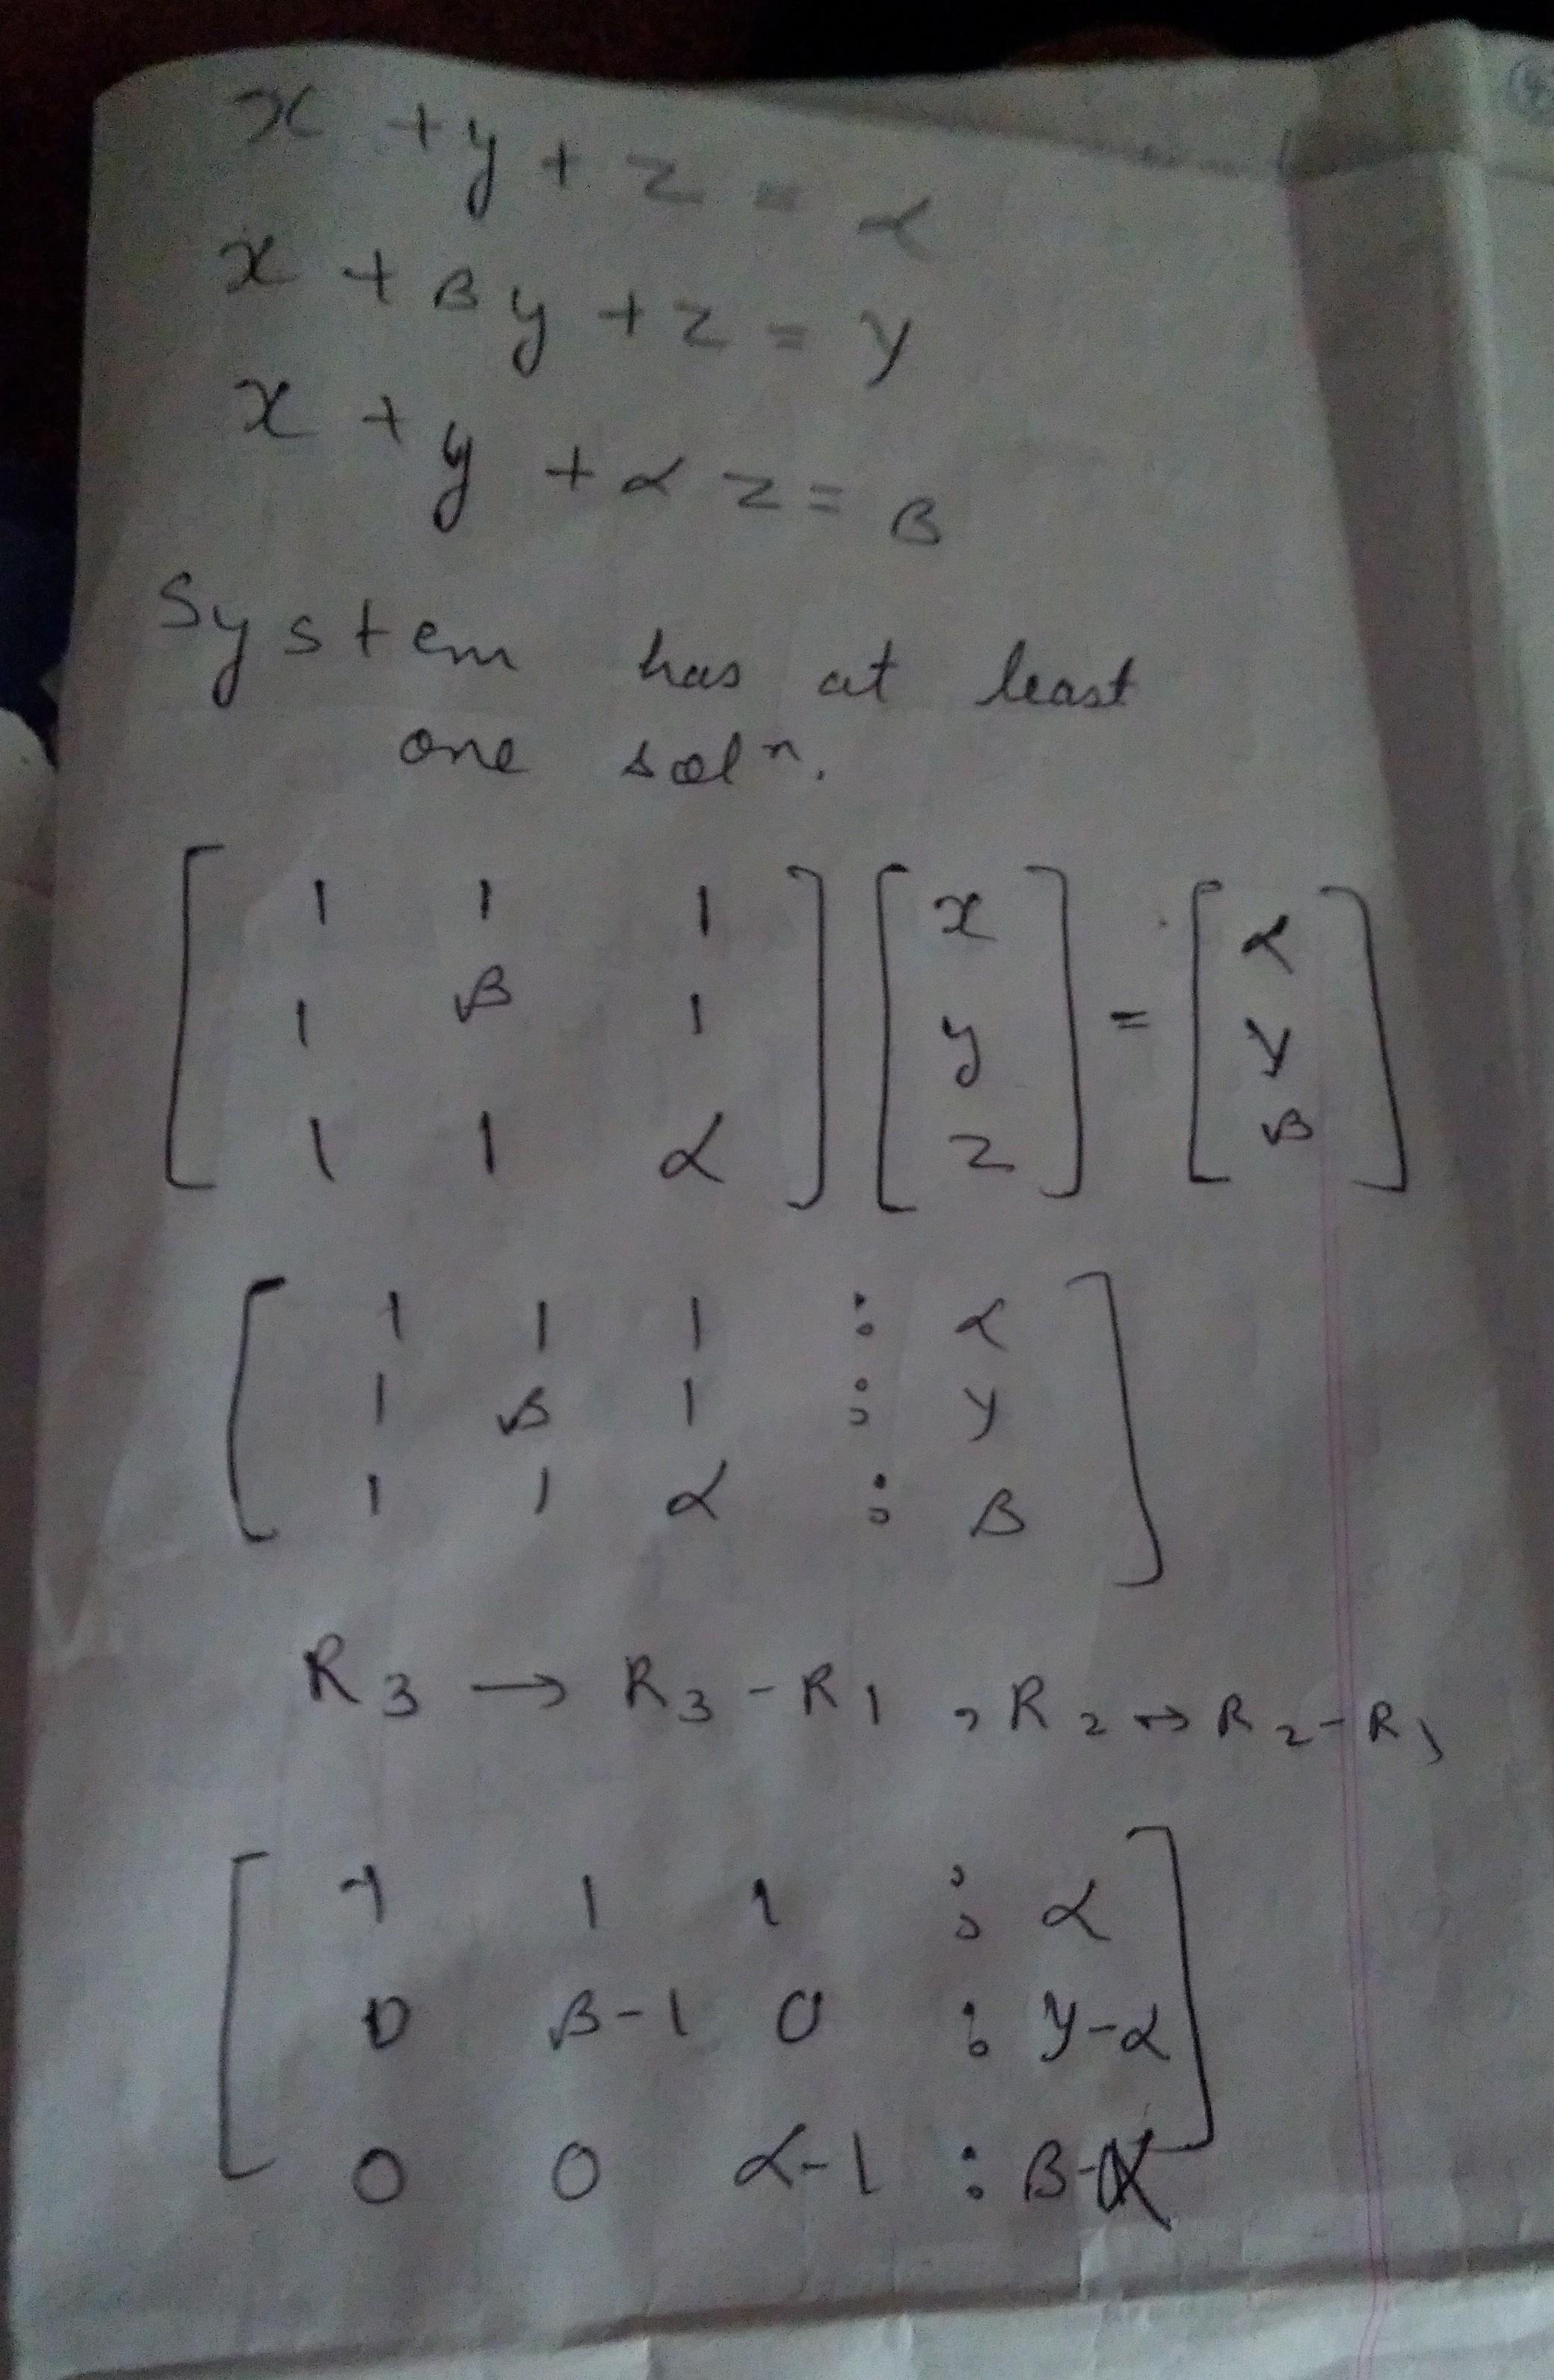 x + y + z = α
x + βy + z = γ
x + y + α z = β
System has at least
one solⁿ.
[ 1 1 1 ] [ x ] = [ α ]
[ 1 β 1 ] [ y ] [ γ ]
[ 1 1 α ] [ z ] [ β ]
[ 1 1 1 : α ]
[ 1 β 1 : γ ]
[ 1 1 α : β ]
R₃ → R₃ - R₁ , R₂ → R₂ - R₁
[ 1 1 1 : α ]
[ 0 β-1 0 : γ-α ]
[ 0 0 α-1 : β-α ]